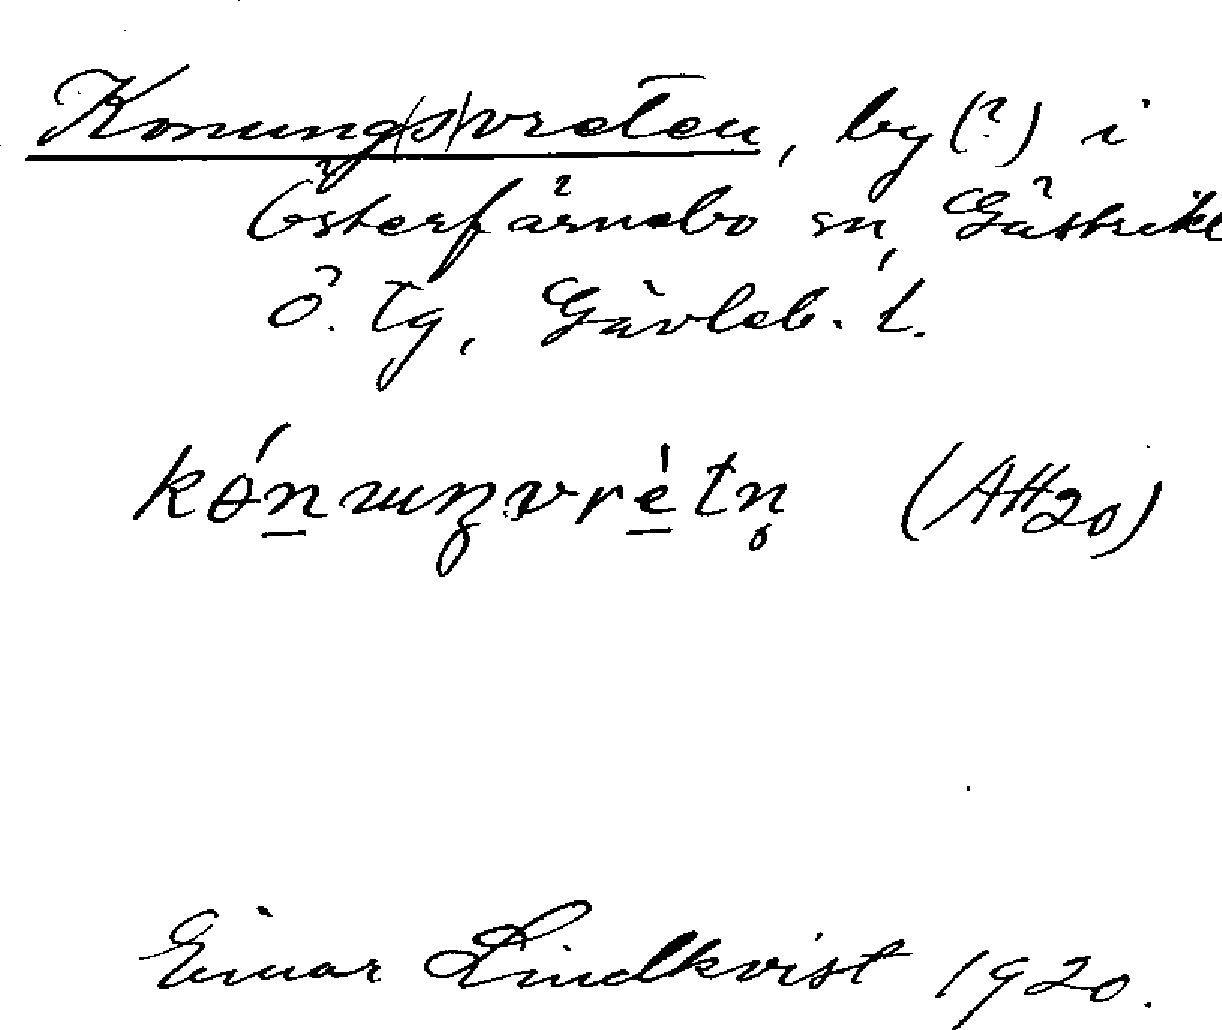 Konung(s)vreten, by(?) i
Österfärnebo sn, Gästrikl
ö. tg, Gävleb. l.
kónuŋvrètn̥ (AH20)
Einar Lindkvist 1920.